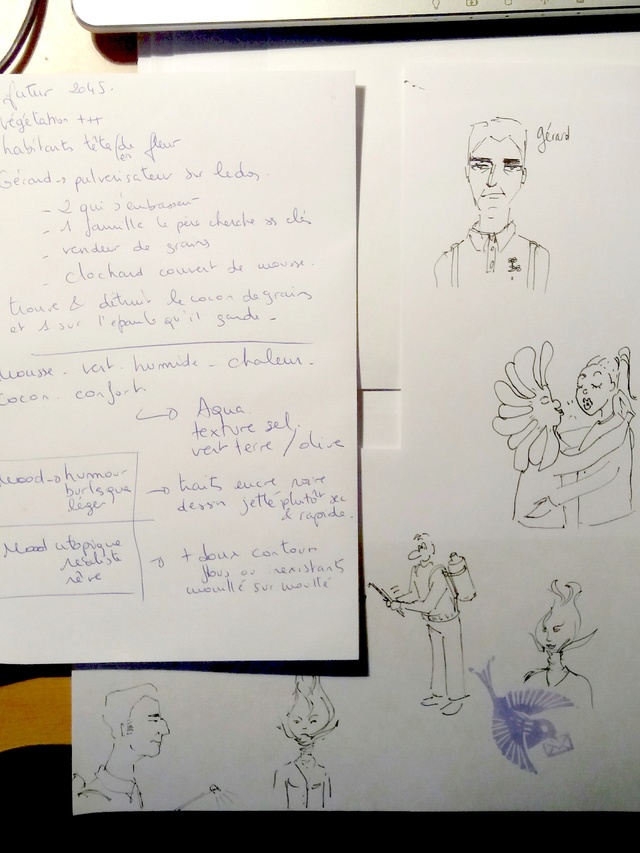 futur 2045.
végétation +++
habitants tête/de fleur
en
Gérard → pulvérisateur sur le dos.
- 2 qui s'embrassent
- 1 famille le père cherche ses clés
- vendeur de grains
- clochard couvert de mousse.
trouve & détruit le cocon de grains
et 1 sur l'épaule qu'il garde -
Mousse - vert. humide - chaleur -
Cocon. confort
→ Aqua.
texture sel.
vert terre / olive
Mood → humour
burlesque
léger
→ traits encre noire
dessin jetté plutôt sec
& rapide.
Mood utopique
réaliste
rêve
→ + doux contours
flous ou inexistants
mouillé sur mouillé
Gérard